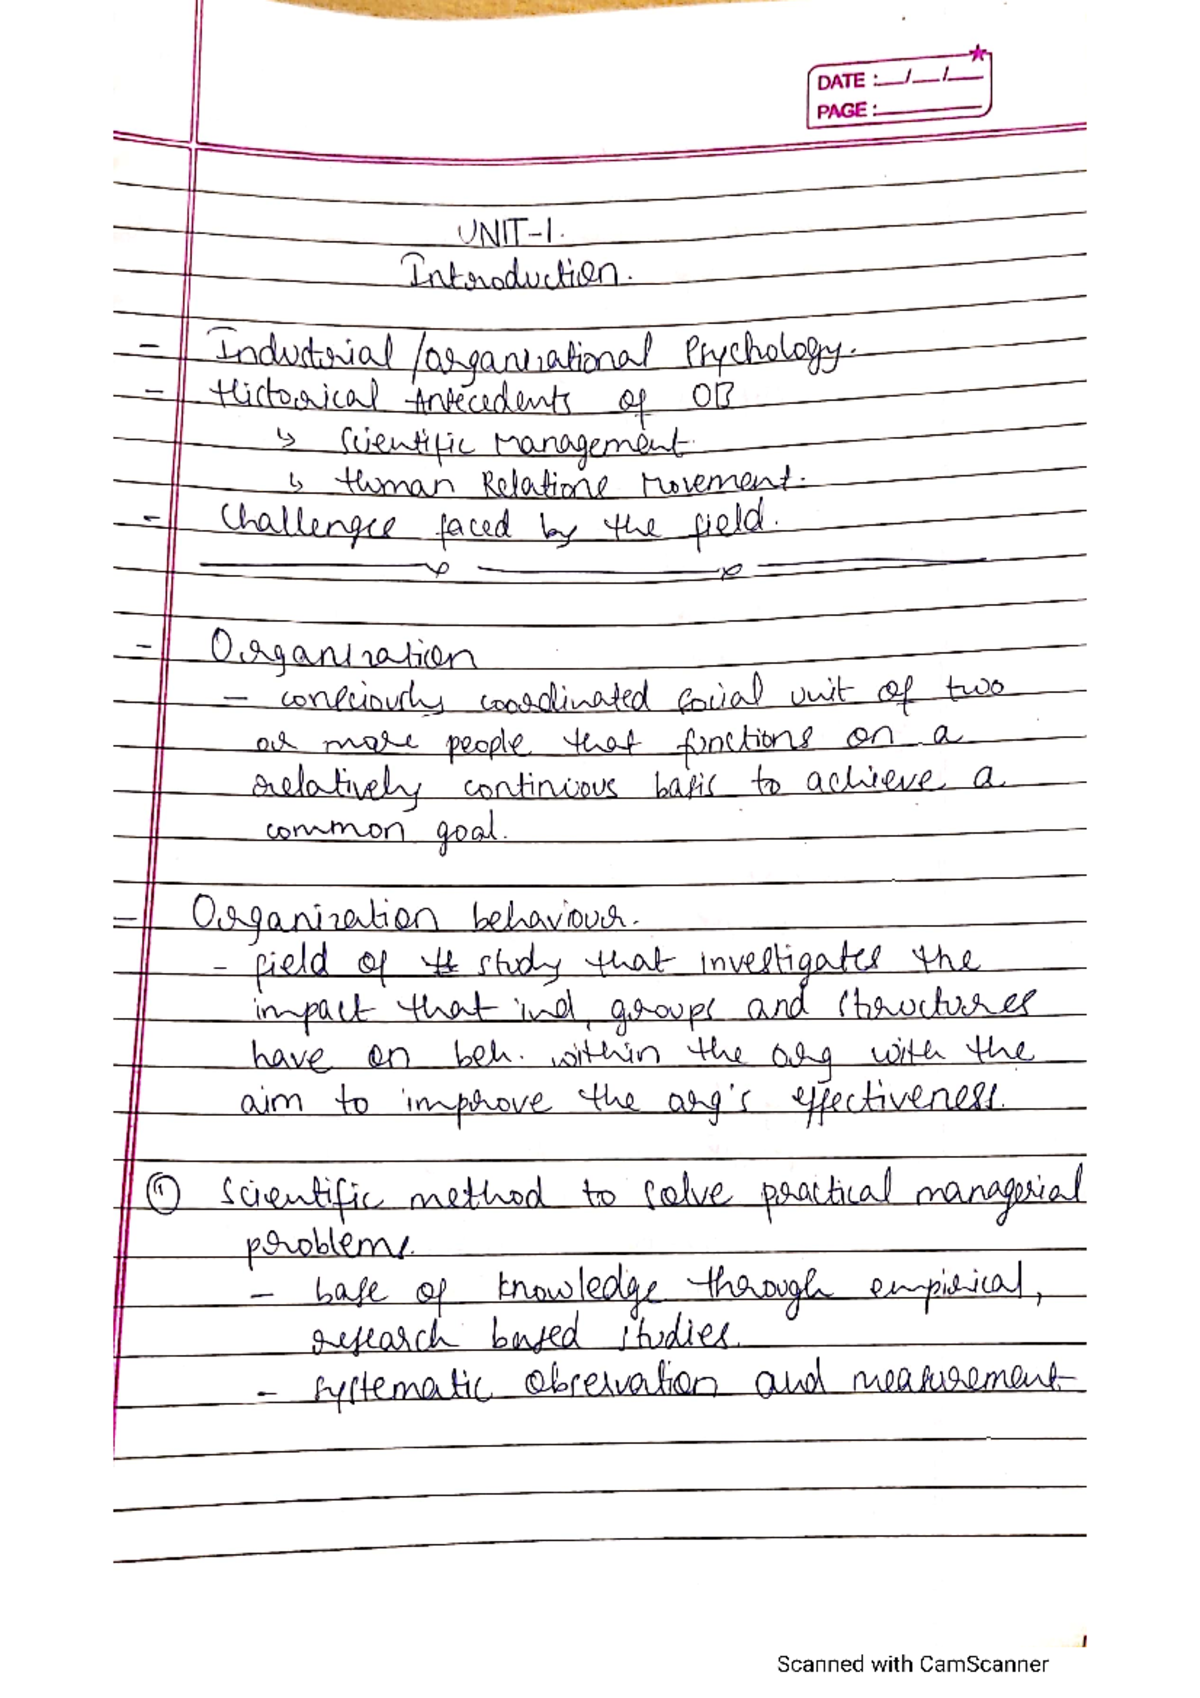 DATE :__/__/__
PAGE :
UNIT-1.
Introduction.
- Industrial/organizational Psychology.
- Historical Antecedents of OB
↳ Scientific Management.
↳ Human Relations Movement.
- Challenges faced by the field.
- Organization
- consciously coordinated social unit of two
or more people that functions on a
relatively continious basis to achieve a
common goal.
- Organization behaviour.
- field of study that investigates the
impact that ind, groups and structures
have on beh. within the org with the
aim to improve the org's effectiveness.
① Scientific method to solve practical managerial
problems.
- base of knowledge through empirical,
research based studies.
- systematic observation and measurement
Scanned with CamScanner